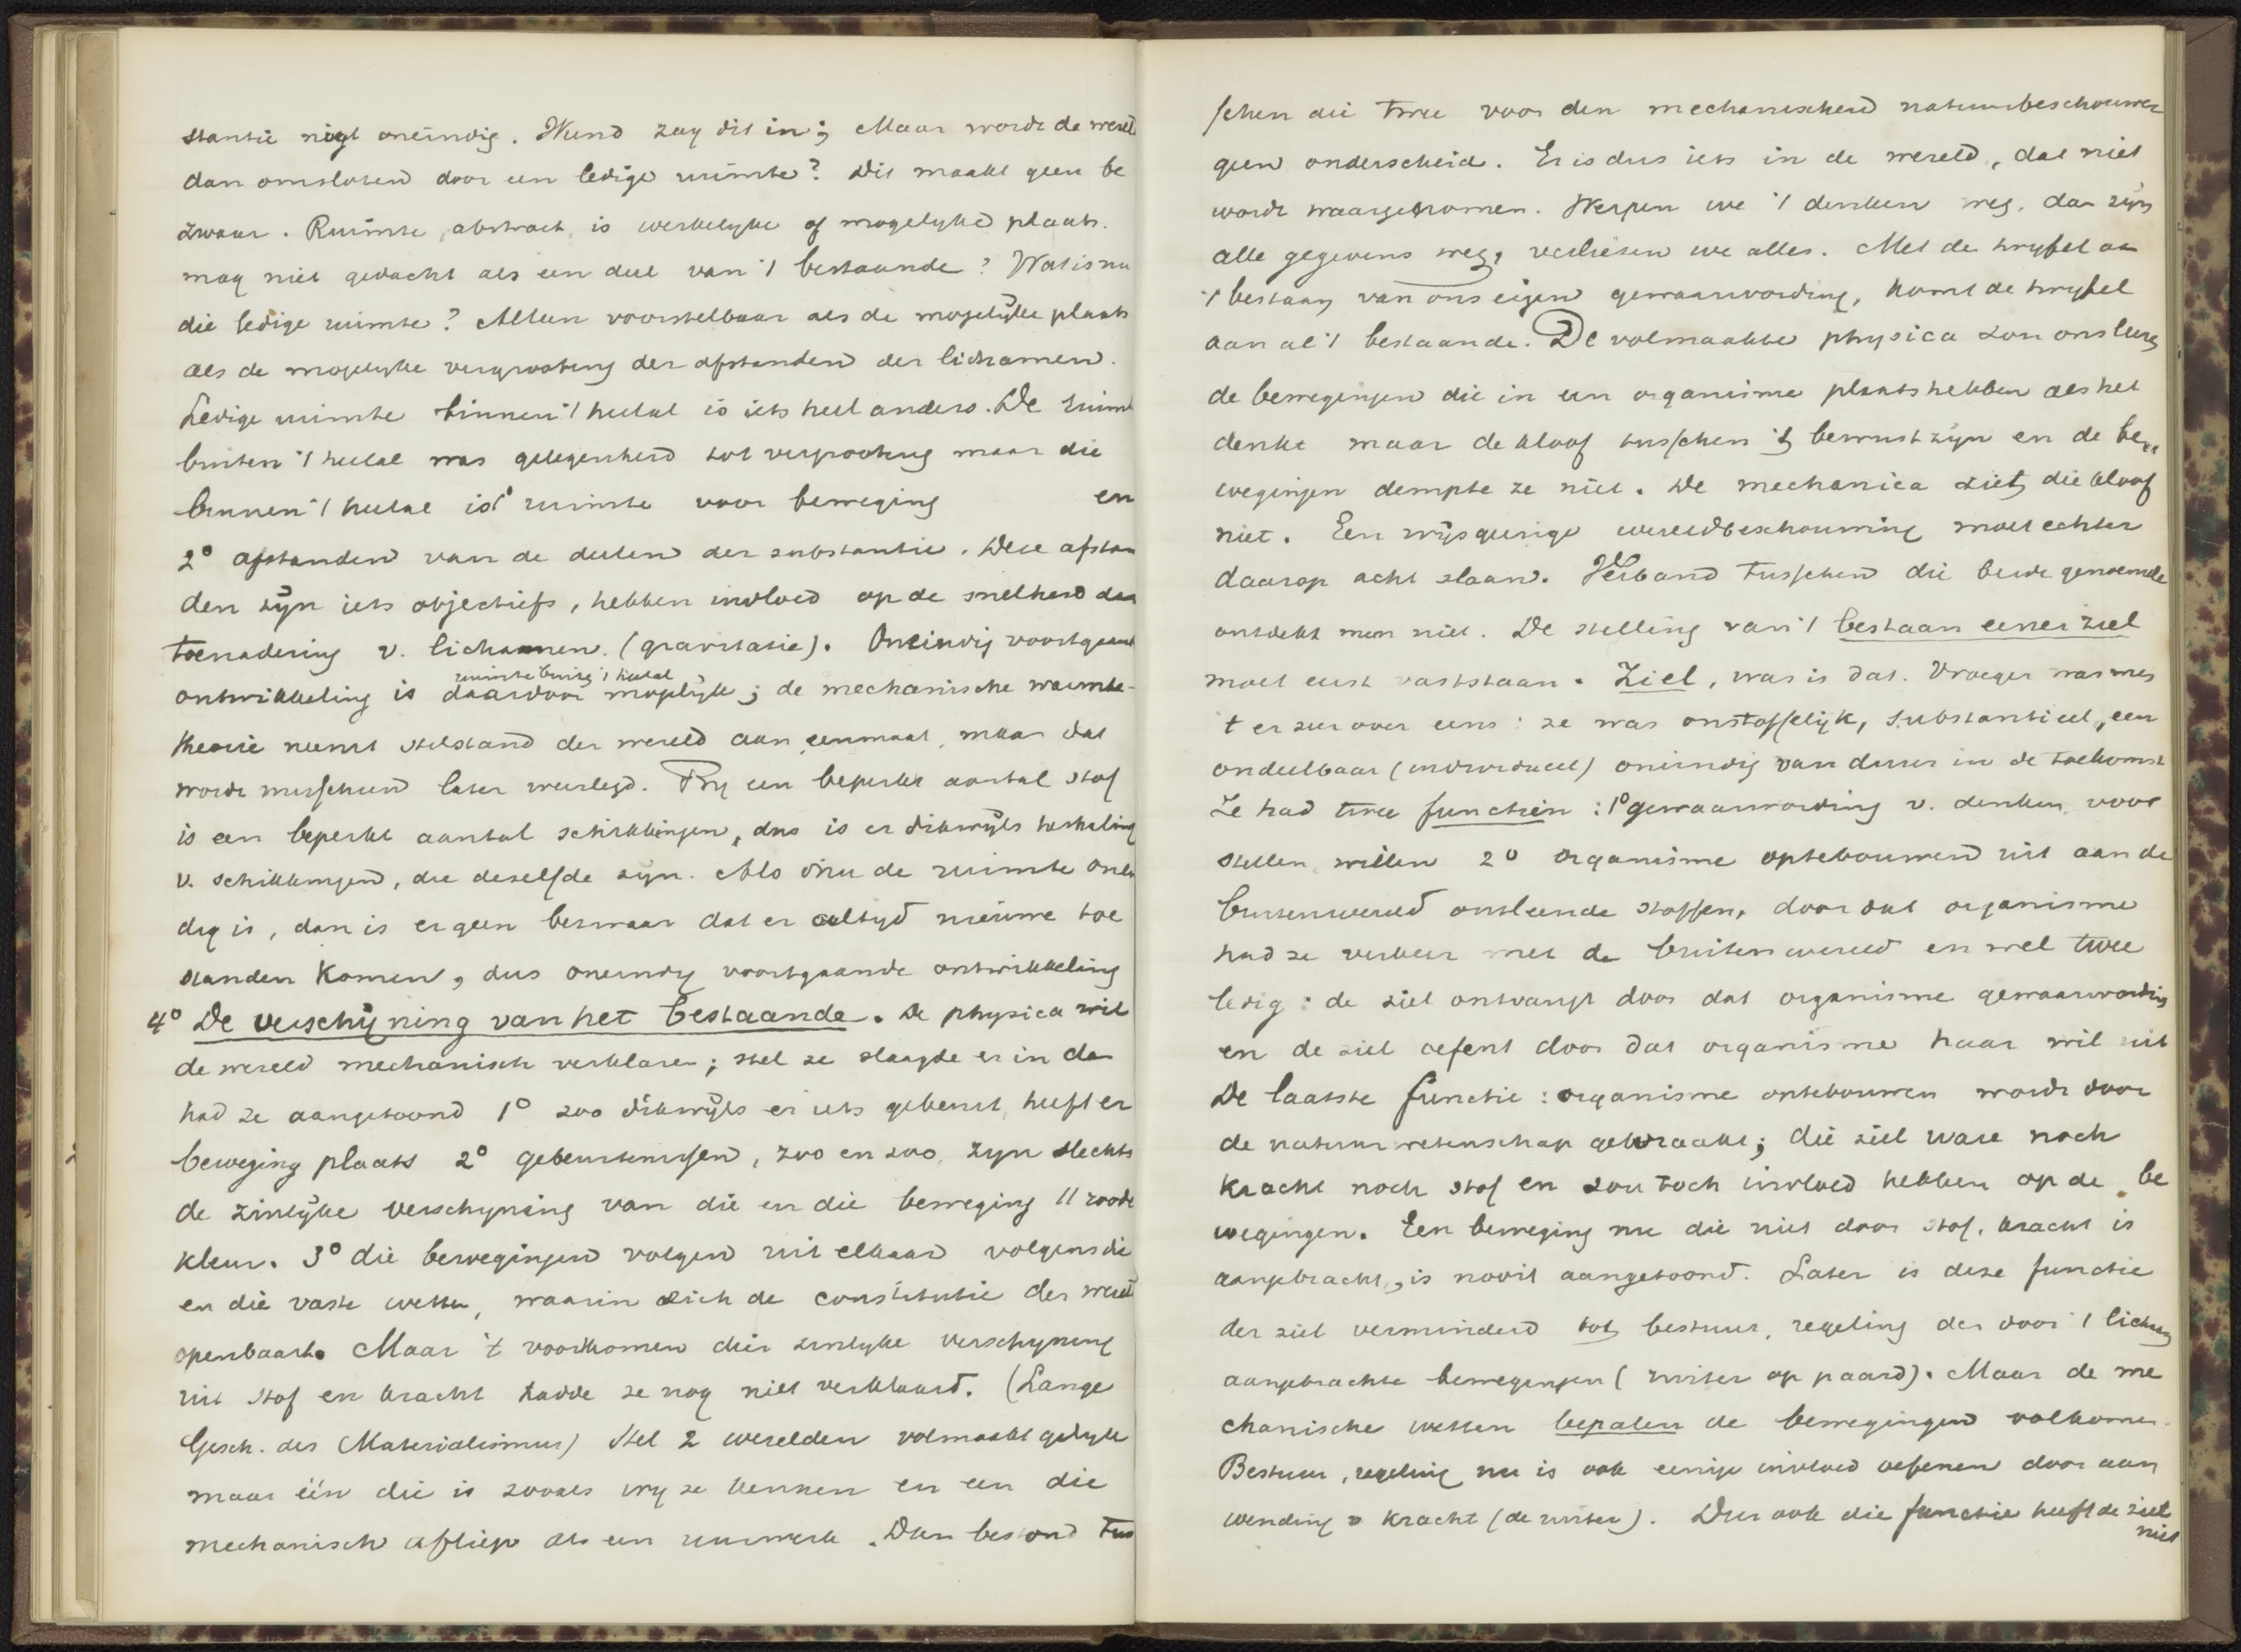 stantie nigt oneindig. Wund zag dit in; Maar wordt de wereld
dan omsloten door een ledige ruimte? Dit maakt geen be
zwaar. Ruimte, abstract, is werkelyke of mogelyke plaats.
mag niet gedacht als een deel van 't bestaande? Wat is nu
die ledige ruimte? Alleen voorstelbaar als de mogelyke plaats
als de mogelyke vergrooting der afstanden der lichamen.
Ledige ruimte binnen 't heelal is iets heel anders. De ruimt
buiten 't heelal was gelegenheid tot vergrooting maar die
binnen 't heelal is 1° ruimte voor beweging en
2° afstanden van de deelen der substantie. Deze afstan
den zyn iets objectiefs, hebben invloed op de snelheid der
toenadering v. lichamen. (gravitatie). Oneindig voortgaand
ruimte buiten 't heelal
ontwikkeling is daardoor mogelyk; de mechanische warmte-
theorie neemt stilstand der wereld aan eenmaal, maar dat
wordt misschien later weerlegd. By een beperkt aantal stof
is een beperkt aantal schikkingen, dus is er dikwyls herhaling
v. schikkingen, die dezelfde zyn. Als nu de ruimte onein
dig is, dan is er geen bezwaar dat er altyd nieuwe toe
standen komen, dus oneindig voortgaande ontwikkeling
4° De verschijning van het bestaande. De physica wil
de wereld mechanisch verklaren; stel ze slaagde er in dan
had ze aangetoond 1° zoo dikwyls er iets gebeurt, heeft er
beweging plaats 2° gebeurtenissen, zoo en zoo, zyn slechts
de zinlyke verschyning van die en die beweging || roode
kleur. 3° die bewegingen volgen uit elkaar volgens die
en die vaste wetten, waarin zich de constitutie der wereld
openbaart. Maar 't voorkomen dier zinlyke verschyning
uit stof en kracht hadde ze nog niet verklaard. (Lange
Gesch. des Materialismus) Stel 2 werelden volmaakt gelyk
maar één die is zooals wy ze kennen en een die
mechanisch afliep als een uurwerk. Dan bestond tus
schen die twee voor den mechanischen natuurbeschouwer
geen onderscheid. Er is dus iets in de wereld, dat niet
wordt waargenomen. Werpen we 't denken weg, dan zyn
alle gegevens weg, verliezen we alles. Met de twyfel aan
't bestaan van ons eigen gewaarwording, komt de twyfel
aan al 't bestaande. De volmaakte physica zou ons leeren
de bewegingen die in een organisme plaats hebben als het
denkt maar de kloof tusschen 't bewustzijn en de be
wegingen dempte ze niet. De mechanica ziet die kloof
niet. Een wijsgerige wereldbeschouwing moet echter
daarop acht slaan. Verband tusschen die beide genoemde
ontdekt men niet. De stelling van 't bestaan eener ziel
moet eerst vaststaan. Ziel, was is dat. Vroeger was men
't er zeer over eens: ze was onstoffelijk, substantieel, een
ondeelbaar (individueel) oneindig van duur in de toekomst
Ze had twee functiën: 1° gewaarwording v. denken, voor
stellen, willen 2° organisme optebouwen uit aan de
buitenwereld ontleende stoffen, door dat organisme
had ze verkeer met de buitenwereld en wel twee
ledig: de ziel ontvangt door dat organisme gewaarwording
en de ziel oefent door dat organisme haar wil uit
De laatste functie: organisme optebouwen wordt door
de natuurwetenschap gewraakt; die ziel ware noch
kracht noch stof en zou toch invloed hebben op de be
wegingen. Een beweging nu die niet door stof, kracht is
aangebracht, is nooit aangetoond. Later is deze functie
der ziel verminderd tot bestuur, regeling der door 't lichaam
aangebrachte bewegingen (ruiter op paard). Maar de me
chanische wetten bepalen de bewegingen volkomen.
Bestuur, regeling nu is ook eenige invloed oefenen door aan
wending v kracht (de ruiter). Dus ook die functie heeft de ziel
niet